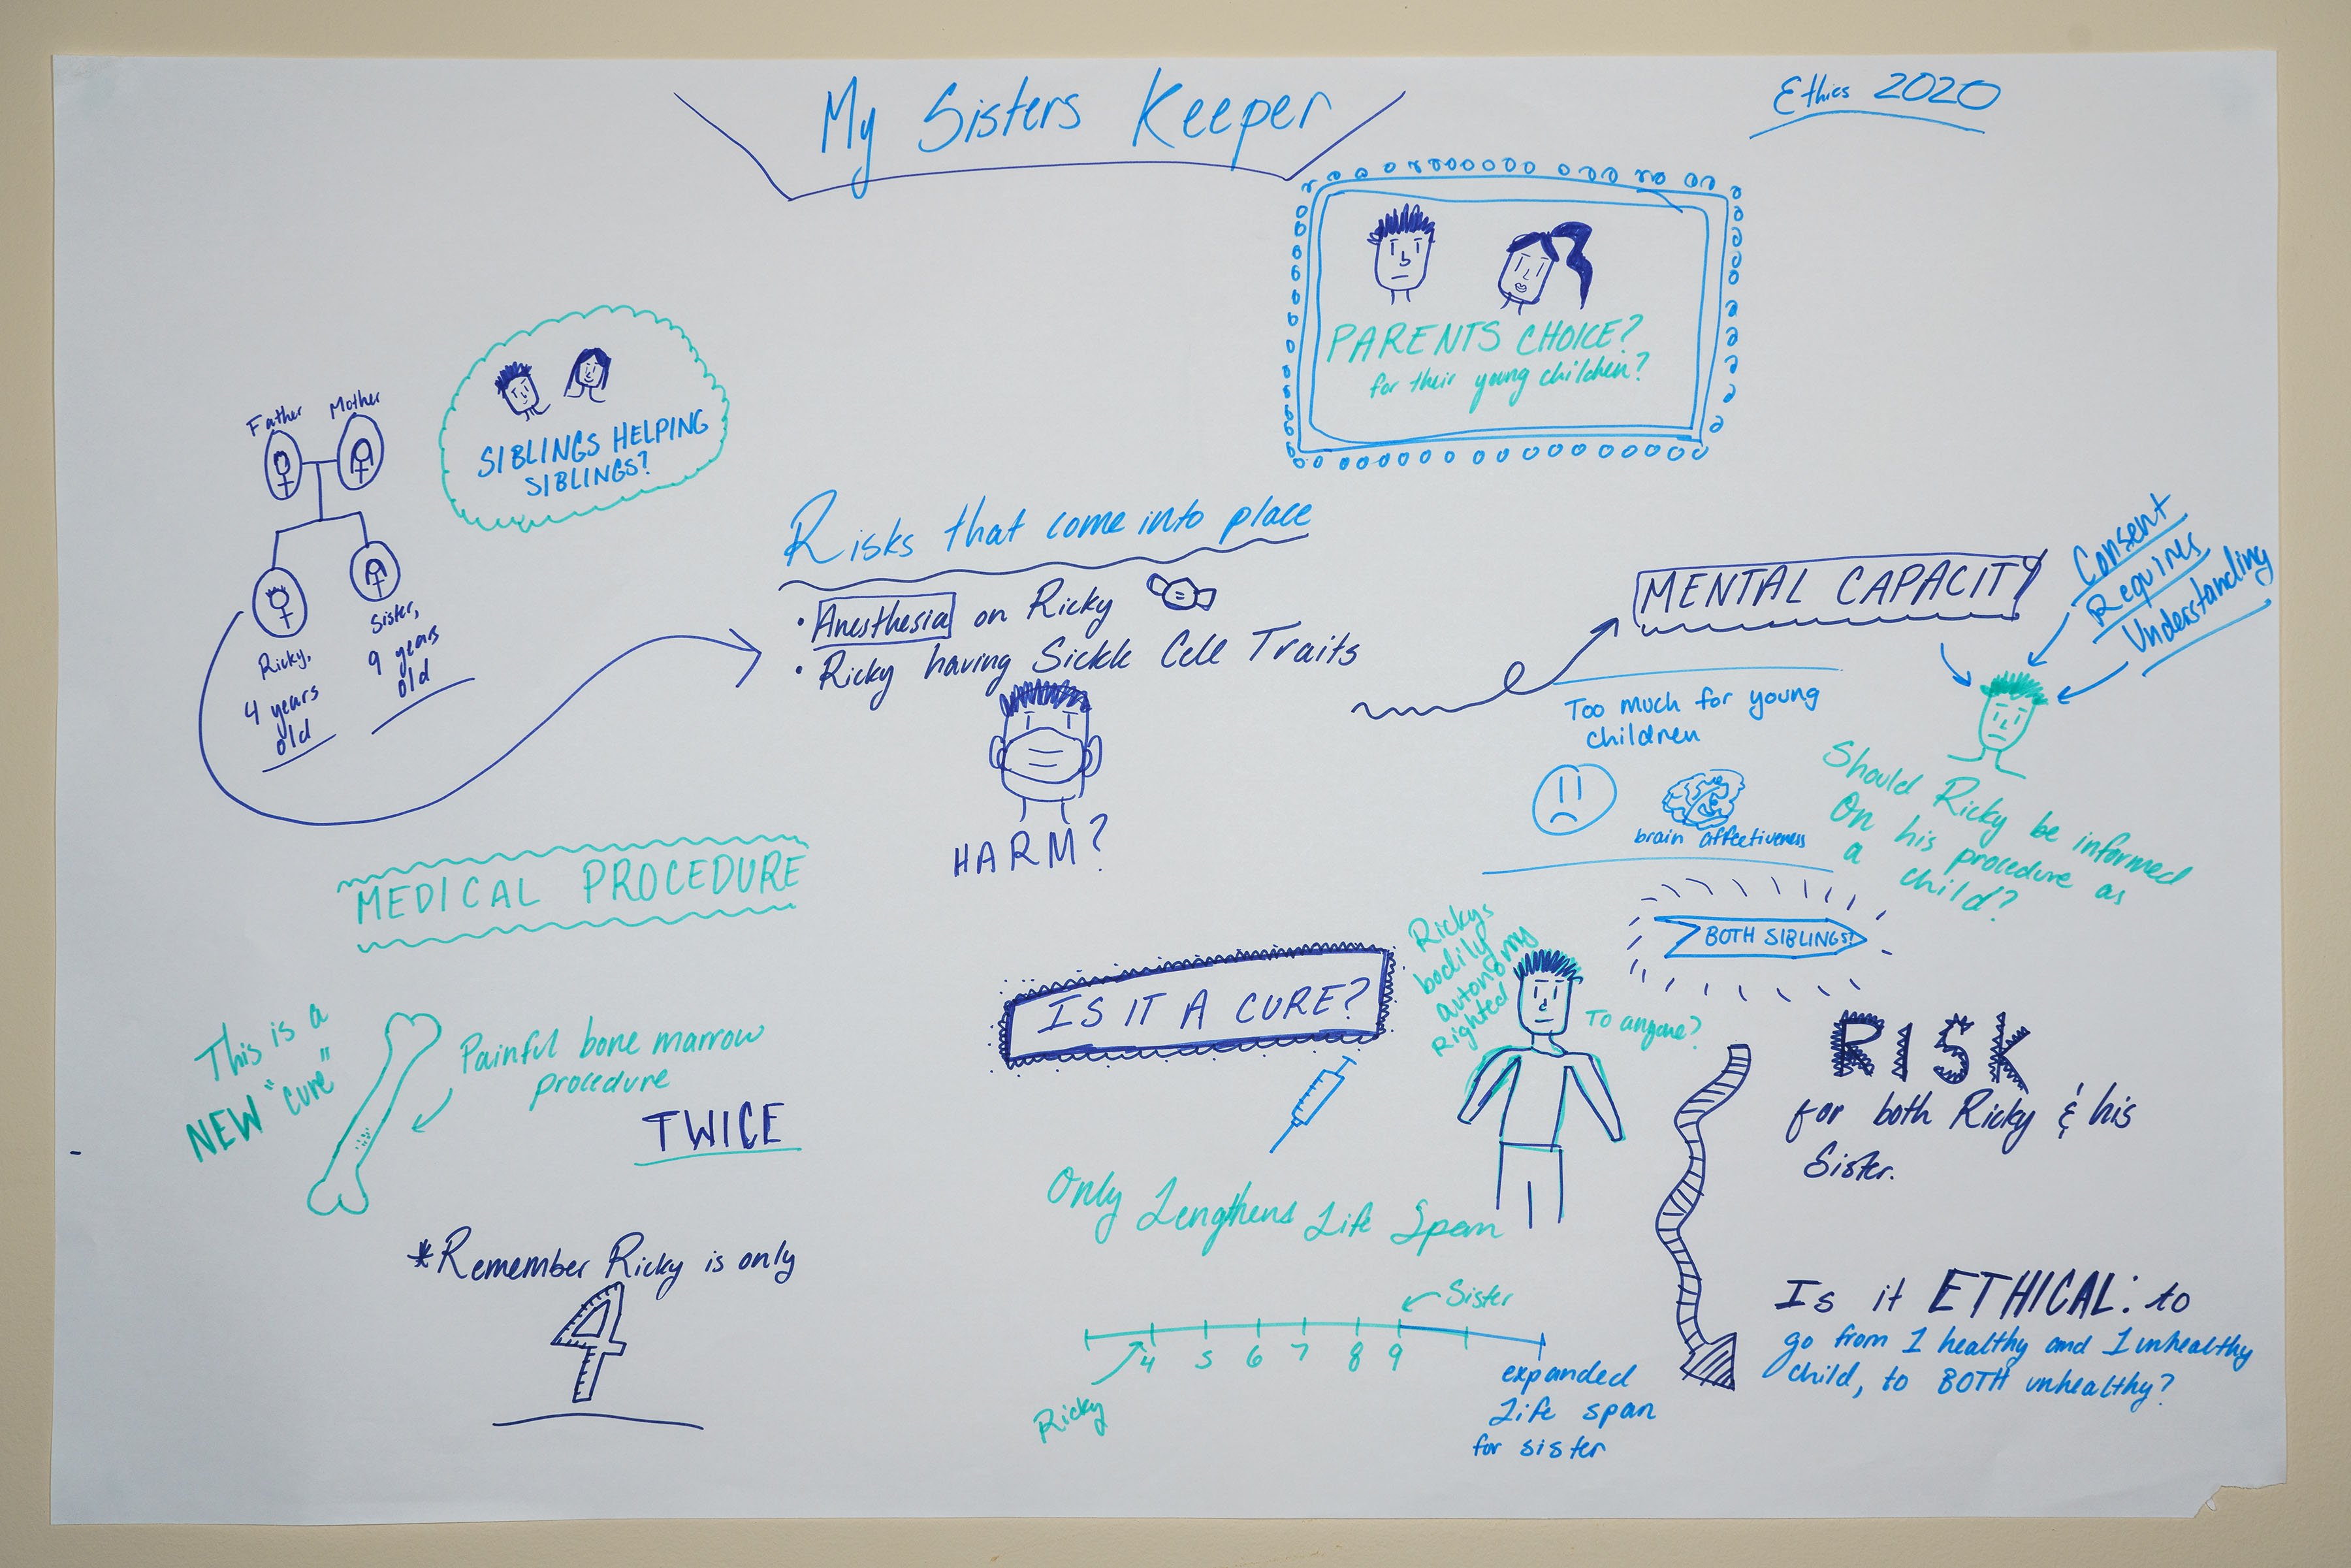 My Sisters Keeper
Ethics 2020
PARENTS CHOICE?
for their young children?
Father
Mother
Ricky,
4 years
old
Sister,
9 years
old
SIBLINGS HELPING
SIBLINGS?
Risks that come into place
• Anesthesia on Ricky
• Ricky having Sickle Cell Traits
HARM?
MENTAL CAPACITY
Consent
Requires
Understanding
Too much for young
children
brain affectiveness
Should Ricky be informed
On his procedure as
a child?
BOTH SIBLINGS!
MEDICAL PROCEDURE
This is a
NEW "cure"
Painful bone marrow
procedure
TWICE
*Remember Ricky is only
4
IS IT A CURE?
Rickys
bodily
autonomy
righted
To anyone?
Only Lengthens Life Span
Sister
4 5 6 7 8 9
Ricky
expanded
Life span
for sister
RISK
for both Ricky & his
Sister.
Is it ETHICAL: to
go from 1 healthy and 1 unhealthy
child, to BOTH unhealthy?